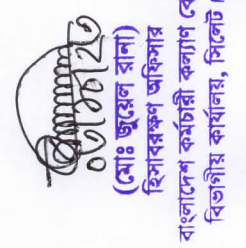 (মোঃ জুয়েল রানা)
হিসাবরক্ষণ অফিসার
বাংলাদেশ কর্মচারী কল্যাণ
বিভাগীয় কার্যালয়, সিলেট।